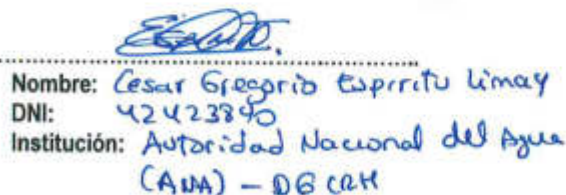 Nombre: Cesar Gregorio Espiritu Limay
DNI: 42423890
Institución: Autoridad Nacional del Agua
(ANA) - DGCRH